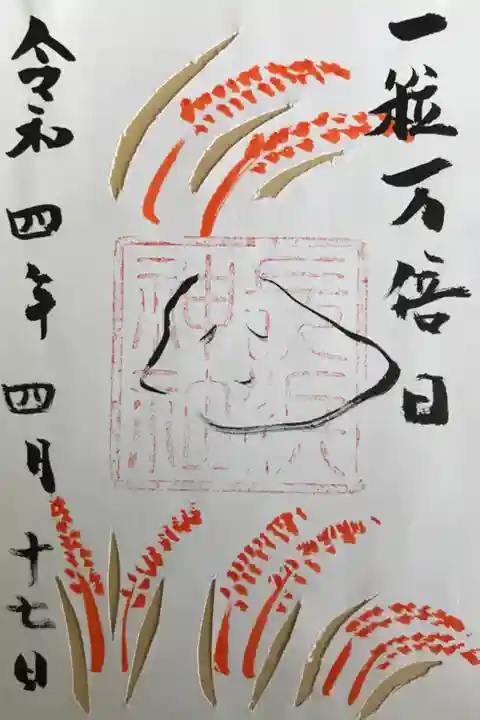 一粒万倍日
令和四年四月十七日